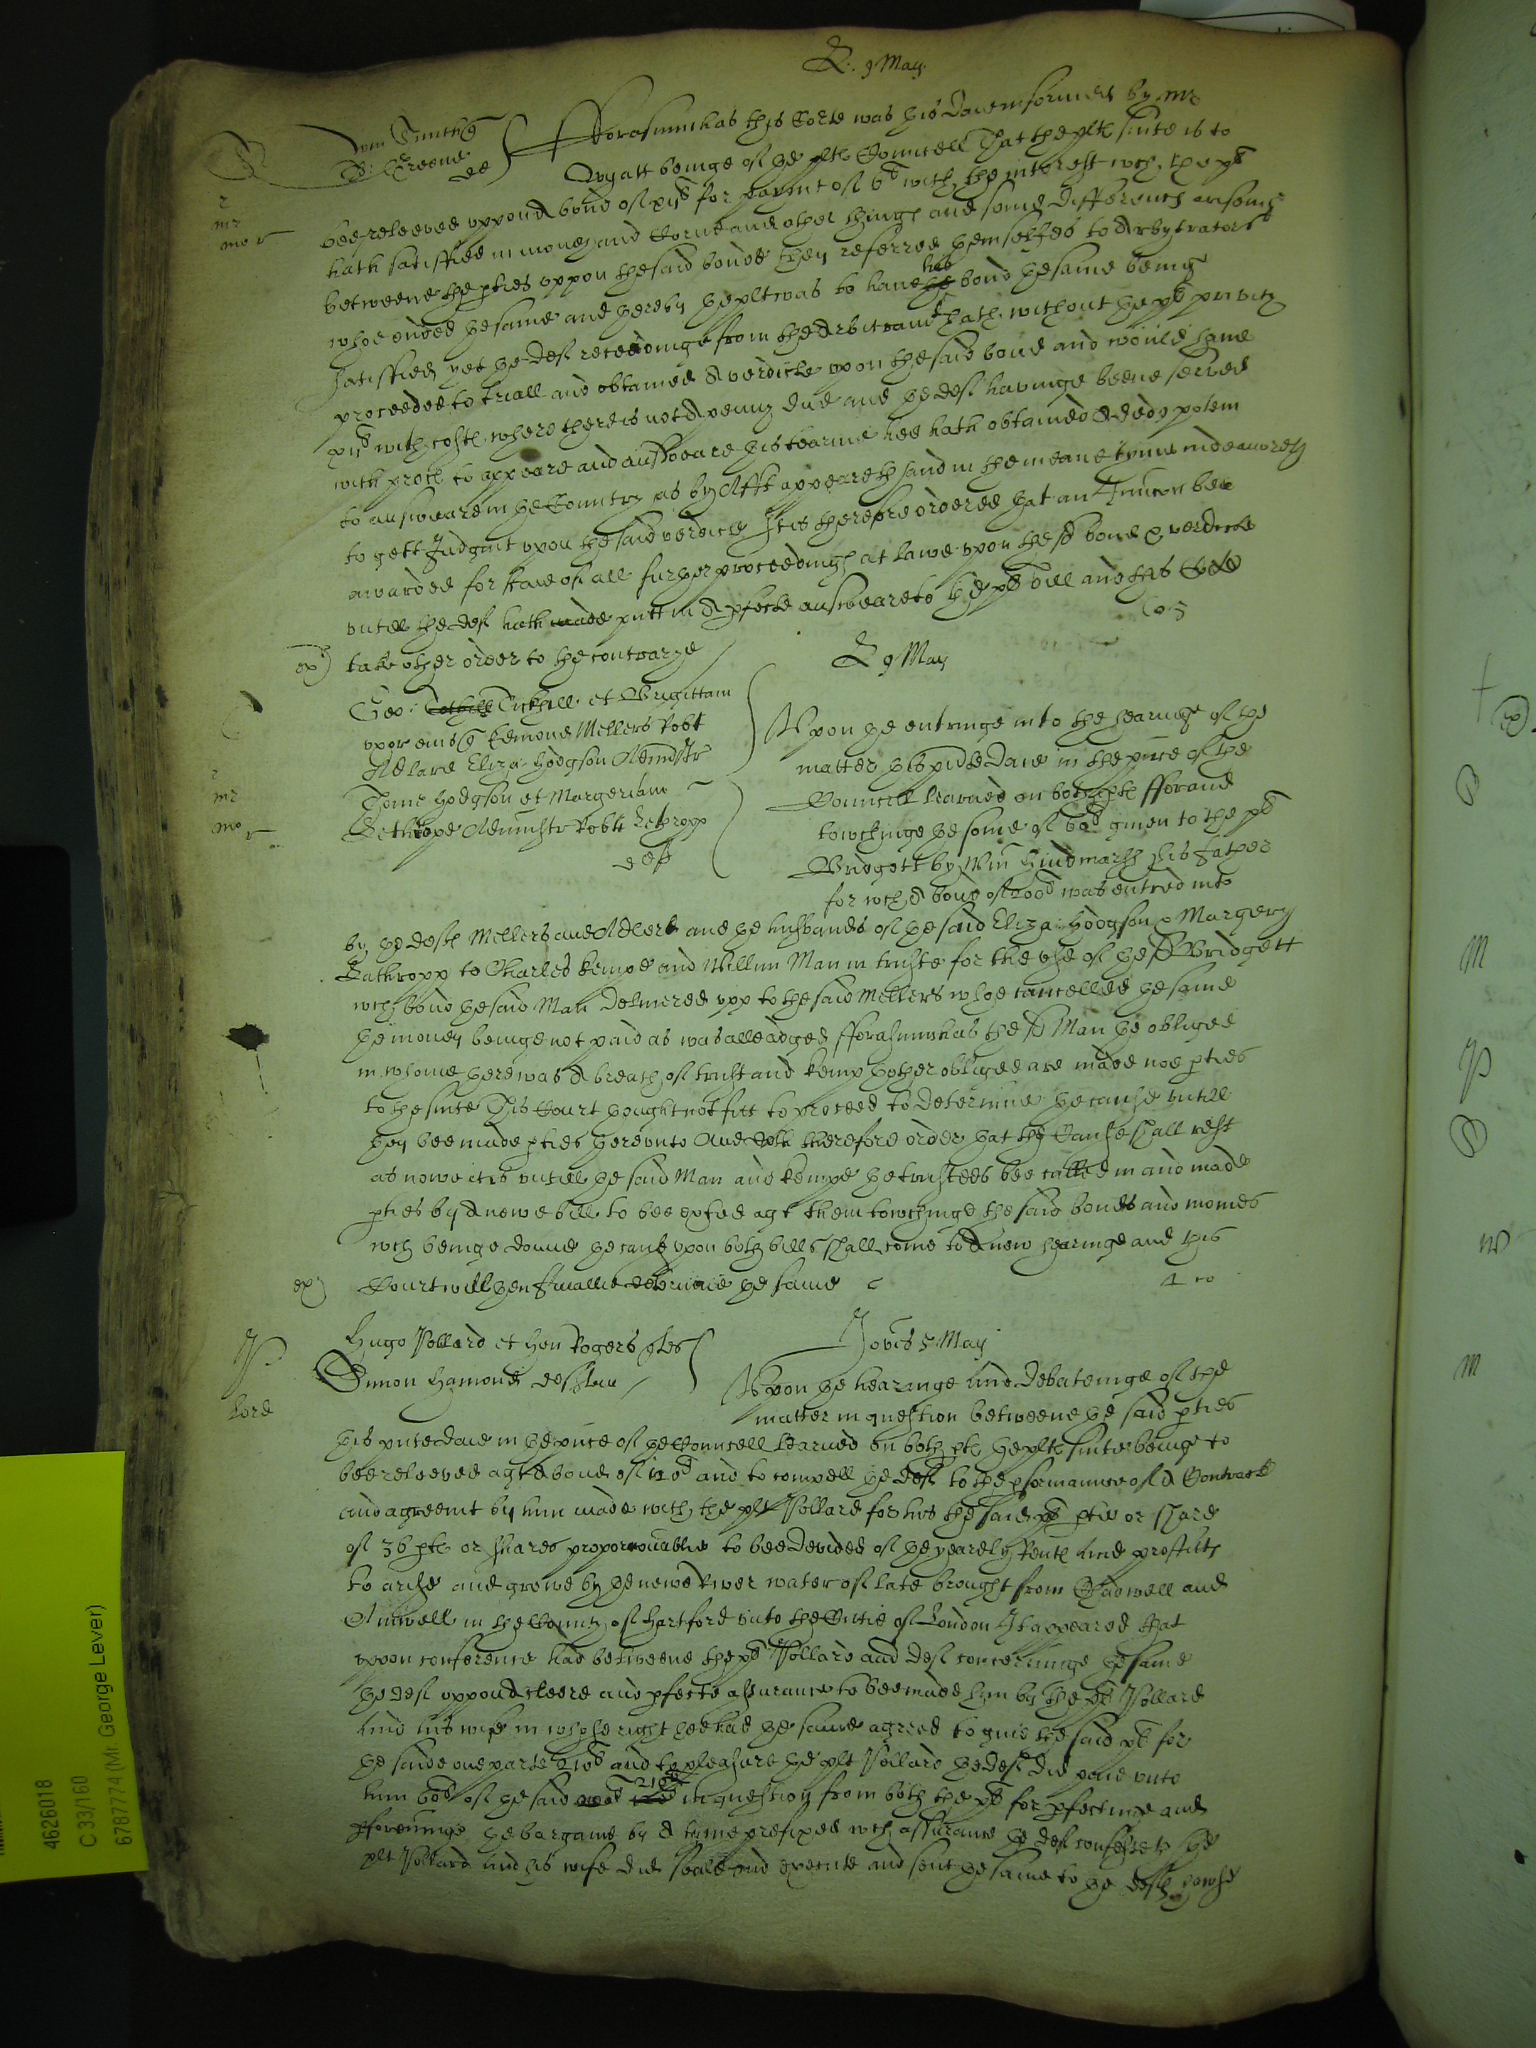 L. 9 May
Wm Smith q
R: Greene de
Forasmuchas this Corte was this daie informed by mr
Wyatt beinge of the plts Councell That the plts suite is to
bee releeved uppon A bond of xijli for paymt of vli with the interest wch the plt
hath satisfied in money and Corne and other things and some differences arisinge
betweene the pties uppon the said bonde they referred themselves to Arbytrators
whoe ended the same and thereby the plt was to have the his bond the same being
satisfied yet the deft receedinge from the Arbitramt hath without the plts privity
proceeded to triall and obtained A verdicte upon the said bond and would have
xijli with costs where there is not A penny due and the deft havinge beene served
with proces to appeare and answeare this tearme hee hath obtained A dedi potem
to answeare in the Country as by Afft appeareth and in the meane tyme indeavoreth
to gett Judgmt upon the said verdict It is therefore ordered that an Iniunccon bee
awarded for staie of all further proceedings at lawe upon the sd bond & verdicte
untill the deft hath made putt in A pfecte answeare to the plts bill and this Corte
take other order to the contrarye
ex)
mr
mor
L 9 May
Geo: Tothill Tickhill et Brigittam
uxor eius q Edmond Mellers Robt
Adlard Eliza: Hodgson Administr
Thome Hodgson et Margeriam
Lethropp Administr Robti Lethropp
deft
mr
mor
Upon the entringe into the hearinge of the
matter this pnte Daie in the pnce of the
Councell learned on both pts for and
towchinge the some of given to the plt
Bridgett by Wm Hindmarsh his father
for wch A bond of 200li was entred into
by the defts Mellers and Adlard and the husbands of the said Eliza: Hodgson & Margery
Lathropp to Charles Kempe and Willm Man in truste for the use of the sd Bridgett
wch bond the said Man delivered upp to the said Mellers whoe cancelled the same
the money beinge not paid as was alleadged Forasmuchas the sd Man the obligee
in whome there was A breach of trust and Kemp thother obligee are made noe pties
to the suite This Court thought not fitt to proceed to determine the cause untill
they bee made pties thereunto And doth therefore order that the Cause shall rest
as nowe it is untill the said Man and Kempe the trustees bee called in and made
pties by A newe bill to bee exhed agt them towchinge the said bonds and monies
wch beinge donne the cause upon both bills shall come to A new hearinge and this
Court will then finallie determine the same
ex)
Hugo Pollard et Hen Rogers ples
Simon Hamond defend
Jovis 5 May
P.
lord
Upon the hearinge and debateinge of the
matter in question betweene the said pties
this pnte daie in the pnce of the Councell learned on both pts the plts suite beinge to
bee releeved agt A bond of and to compell the deft to the pformaunce of A Contract
and agreemt by him made with the plt Pollard for his the said plts ptie or share
of 36 pts or shares proporconablie to bee devided of the yearely Rents and proffitts
to arise and growe by the newe River water of late brought from Chadwell and
Amwell in the County of Hartford unto the Cittie of London It appeared that
uppon conference had betweene the plt Pollard and deft concerninge the same
the deft uppon A cleere and pfecte assurance to bee made him by the plt Pollard
and his wife in whose right hee had the same agreed to give the said plt for
the saide one parte 210li and to pleasure the plt Pollard the deft did paie unto
him 60li of the said 210li in question from both the plts for pfectinge and
pforminge the bargaine by A tyme prefixed wch assurance the deft confesseth the
plt Pollard and his wife did seale and execute and sent the same to the defts howse
4626018
C 33/160
6787774 (Mr. George Lever)